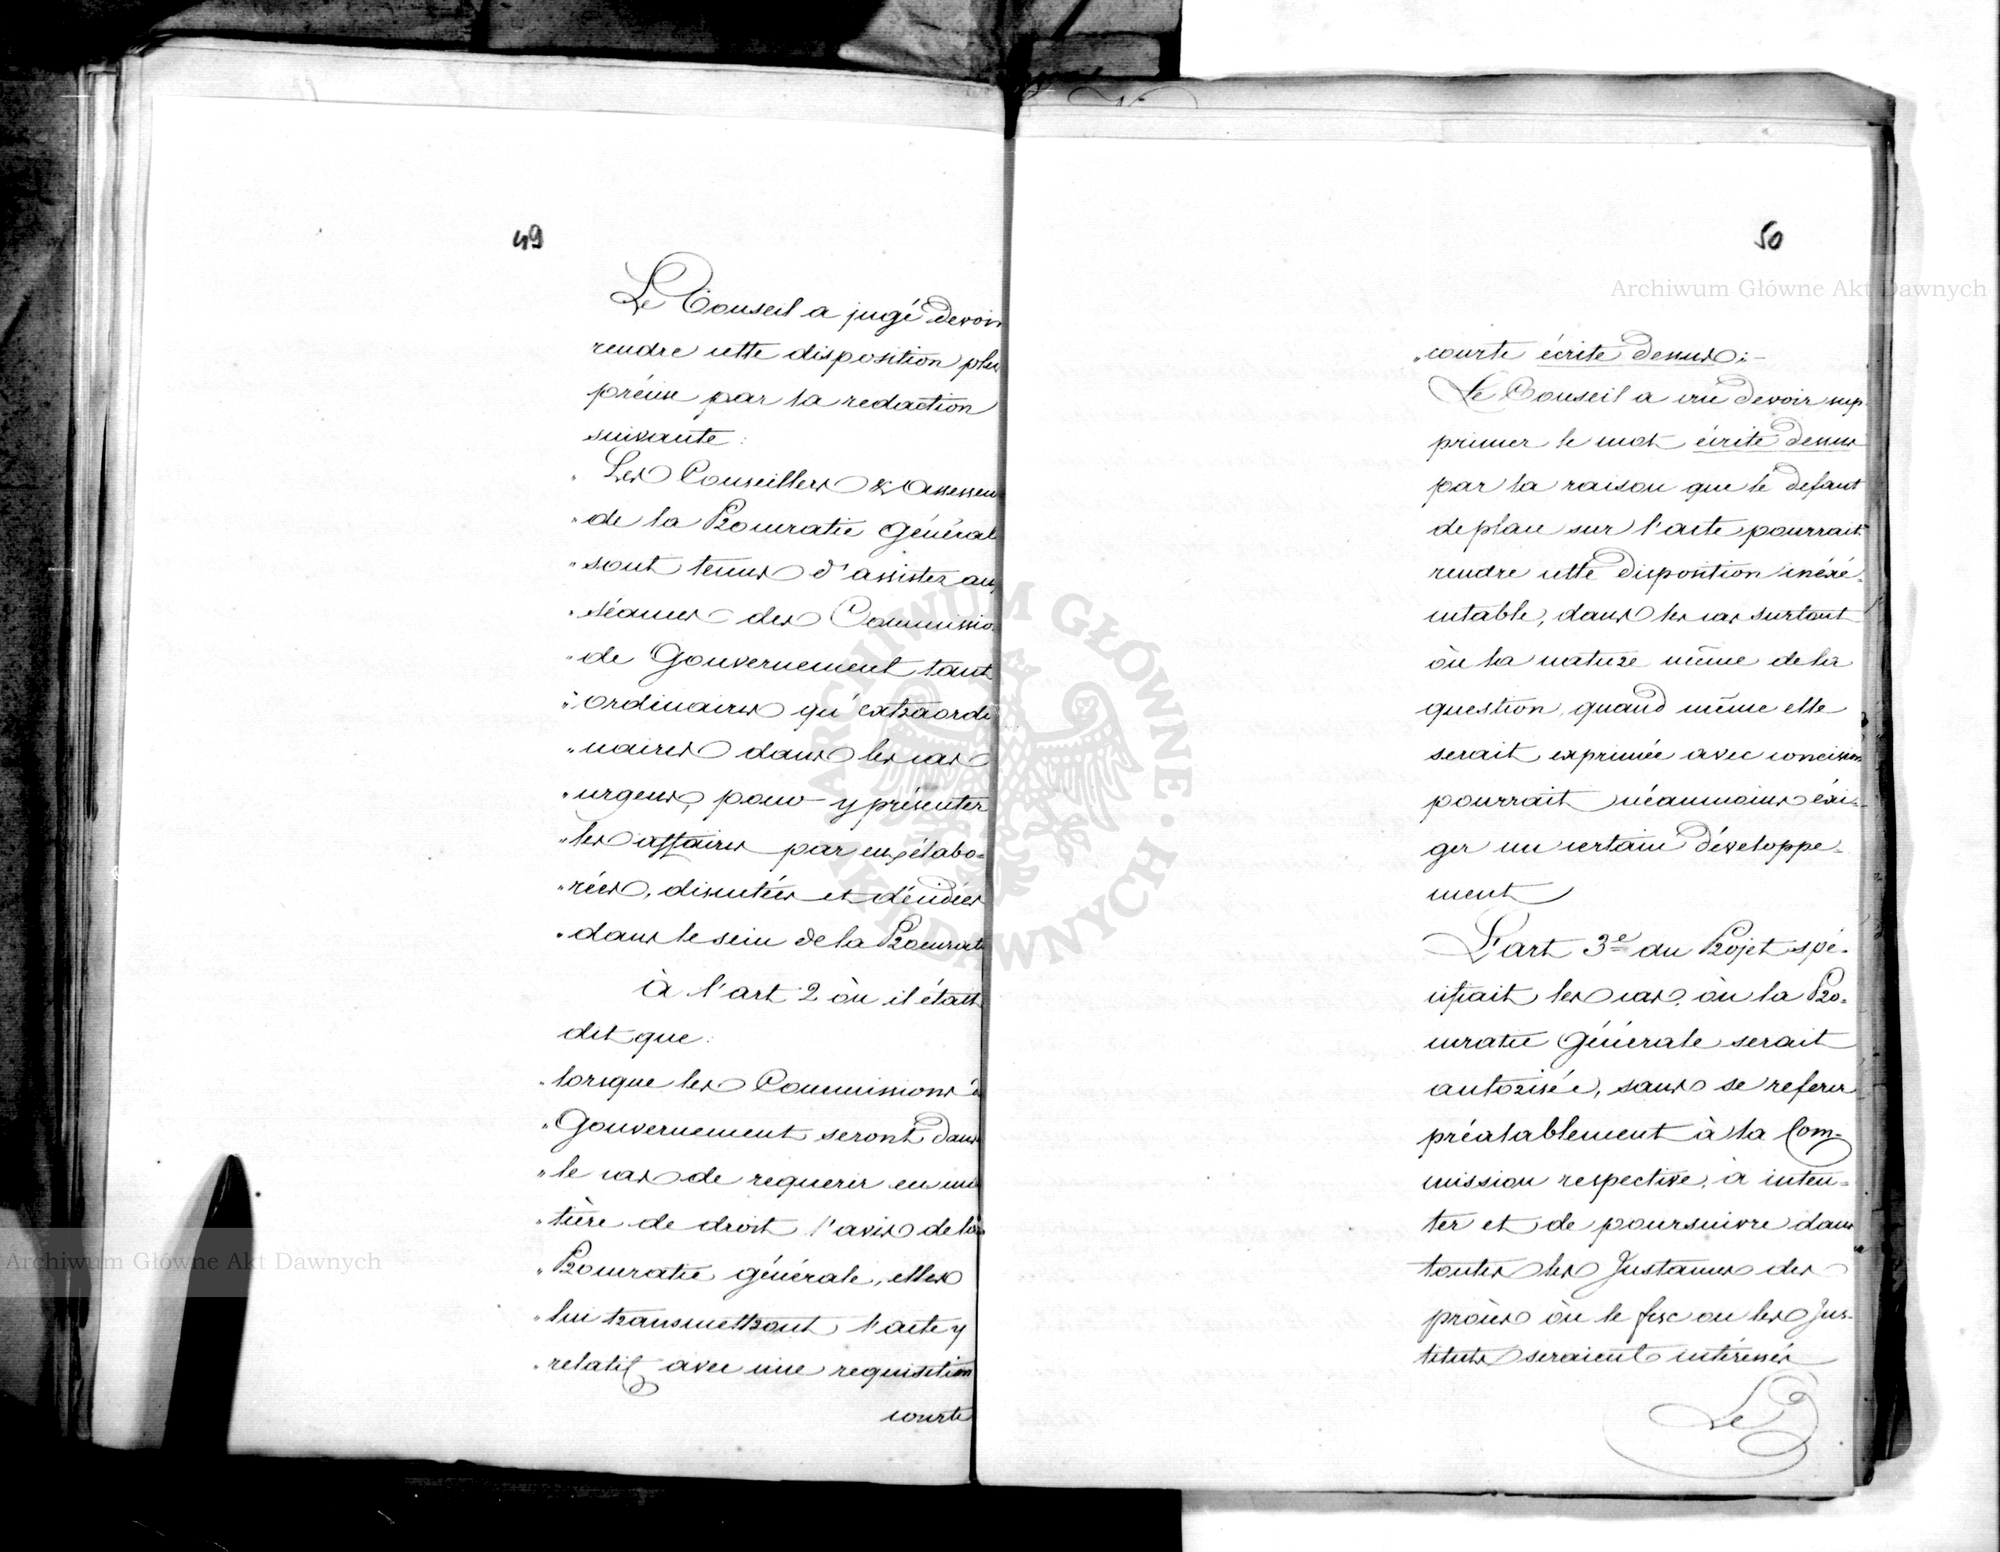 49
Le Conseil a jugé devoir
rendre cette disposition plus
précise par la redaction
suivante:
"Les Conseillers & Assesseu
"de la Procuratie Général
"sont tenus d'assister au
"séances des Commissio
"de Gouvernement tant
"ordinaires qu'extraordi
"naires dans les cas
"urgens, pour y présenter
"les affaires par eux élabo-
"rées, discutées et décidées
"dans le sein de la Procurati
à l'art 2 où il était
dit que:
"lorsque les Commissions d
"Gouvernement seront dans
"le cas de requerir en ma
"tière de droit l'avis de la
"Procuratie générale, elles
"lui transmettront l'acte y
"relatif avec une requisition
courte
50
"courte écrite dessus:-
Le Conseil a crû devoir sup-
primer le mot écrite dessus
par la raison que le defaut
de place sur l'acte pourrait
rendre cette disposition inéxé-
cutable, dans les cas surtout
où la nature même de la
question, quand même elle
serait exprimée avec concision
pourrait néanmoins éxi-
ger un certain développe-
ment
L'art 3e du Projet spé-
cifiait les cas, où la Pro-
curatie Générale serait
autorisée, sans se referer
préalablement à la Com-
mission respective, à inten-
ter et de poursuivre dans
toutes les Instances des
procès où le fisc ou les Ins-
tituts seraient intéressés
Le
Archiwum Główne Akt Dawnych
Archiwum Główne Akt Dawnych
ARCHIWUM GŁÓWNE AKT DAWNYCH